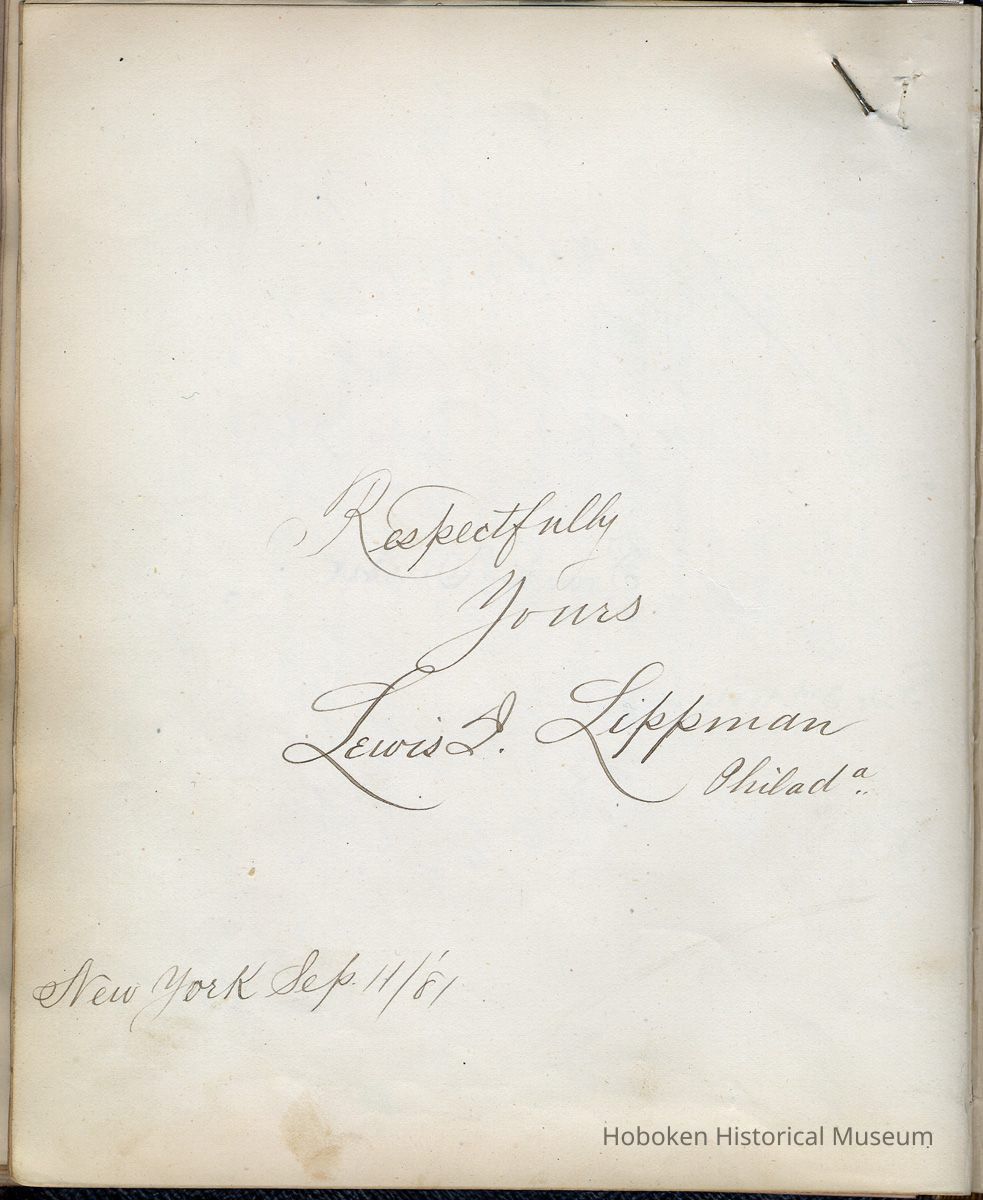 Respectfully
Yours
Lewis I. Lippman
Philada.
New York Sep. 11/'81
Hoboken Historical Museum